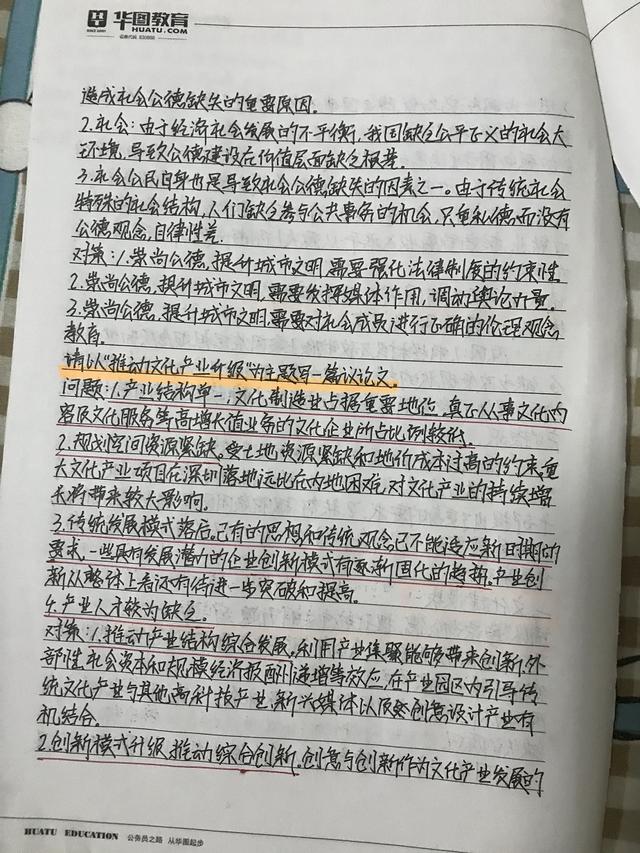 华图教育
HUATU.COM
造成社会公德缺失的重要原因。
2.社会:由于经济社会发展的不平衡,我国缺乏公平正义的社会大
环境,导致公德建设在价值层面缺乏根基。
3.社会公民自身也是导致社会公德缺失的因素之一。由于传统社会
特殊的社会结构,人们缺乏参与公共事务的机会,只重私德而没有
公德观念,自律性差.
对策:1.崇尚公德,提升城市文明,需要强化法律制度的约束性
2.崇尚公德,提升城市文明,需要发挥媒体作用,调动舆论力量.
3.崇尚公德,提升城市文明,需要对社会成员进行正确的伦理观念
教育.
请以"推动文化产业升级"为主题写一篇议论文。
问题:1.产业结构单一,文化制造业占据重要地位,真正从事文化内
容及文化服务等高增长值业务的文化企业所占比例较低.
2.规划空间资源紧缺.受土地资源紧缺和地价成本过高的约束,重
大文化产业项目在深圳落地远比在内地困难,对文化产业的持续增
长将带来较大影响.
3.传统发展模式落后,已有的思想和传统观念已不能适应新时期的
要求,一些具有发展潜力的企业创新模式有逐渐固化的趋势,产业创
新从整体上看还有待进一步突破和提高.
4.产业人才较为缺乏.
对策:1.推动产业结构综合发展,利用产业集聚能够带来创新,外
部性,社会资本和规模经济报酬递增等效应,在产业园区内引导传
统文化产业与其他高科技产业,新兴媒体以及创意设计产业有
机结合.
2.创新模式升级,推动综合创新.创意与创新作为文化产业发展的
HUATU EDUCATION 公务员之路 从华图起步